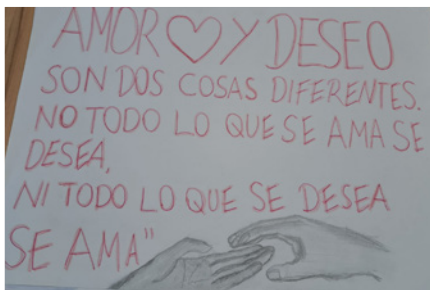 AMOR♡Y DESEO
SON DOS COSAS DIFERENTES.
NO TODO LO QUE SE AMA SE
DESEA,
NI TODO LO QUE SE DESEA
SE AMA"